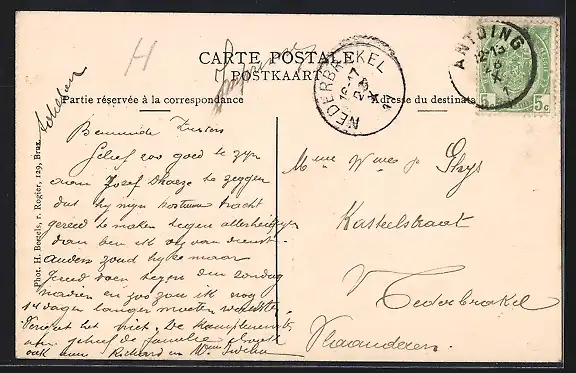 H
Imprimé
CARTE POSTALE
POSTKAART
Partie réservée à la correspondance
Adresse du destinata
ANTOING
12-13
X
1
5c
NEDERBRAKEL
16-17
X
Phot. H. Boegels, r. Rogier, 129, Brux.
Beminde Zusters
Gelief zoo goed te zijn
aan Josef te zeggen
dat hij mijn kostuum tracht
gereed te maken tegen allerheiligen
dan ben ik van dienst
anders zoud hij ke maar
gereed doen tegen den zondag
nadien en zoo zou ik nog
14 dagen langer moeten
Vergeet het niet. De
aan geheel de familie
ook aan Richard en
Mme Wwe Ghys
Kasteelstraat
Nederbrakel
Vlaanderen.